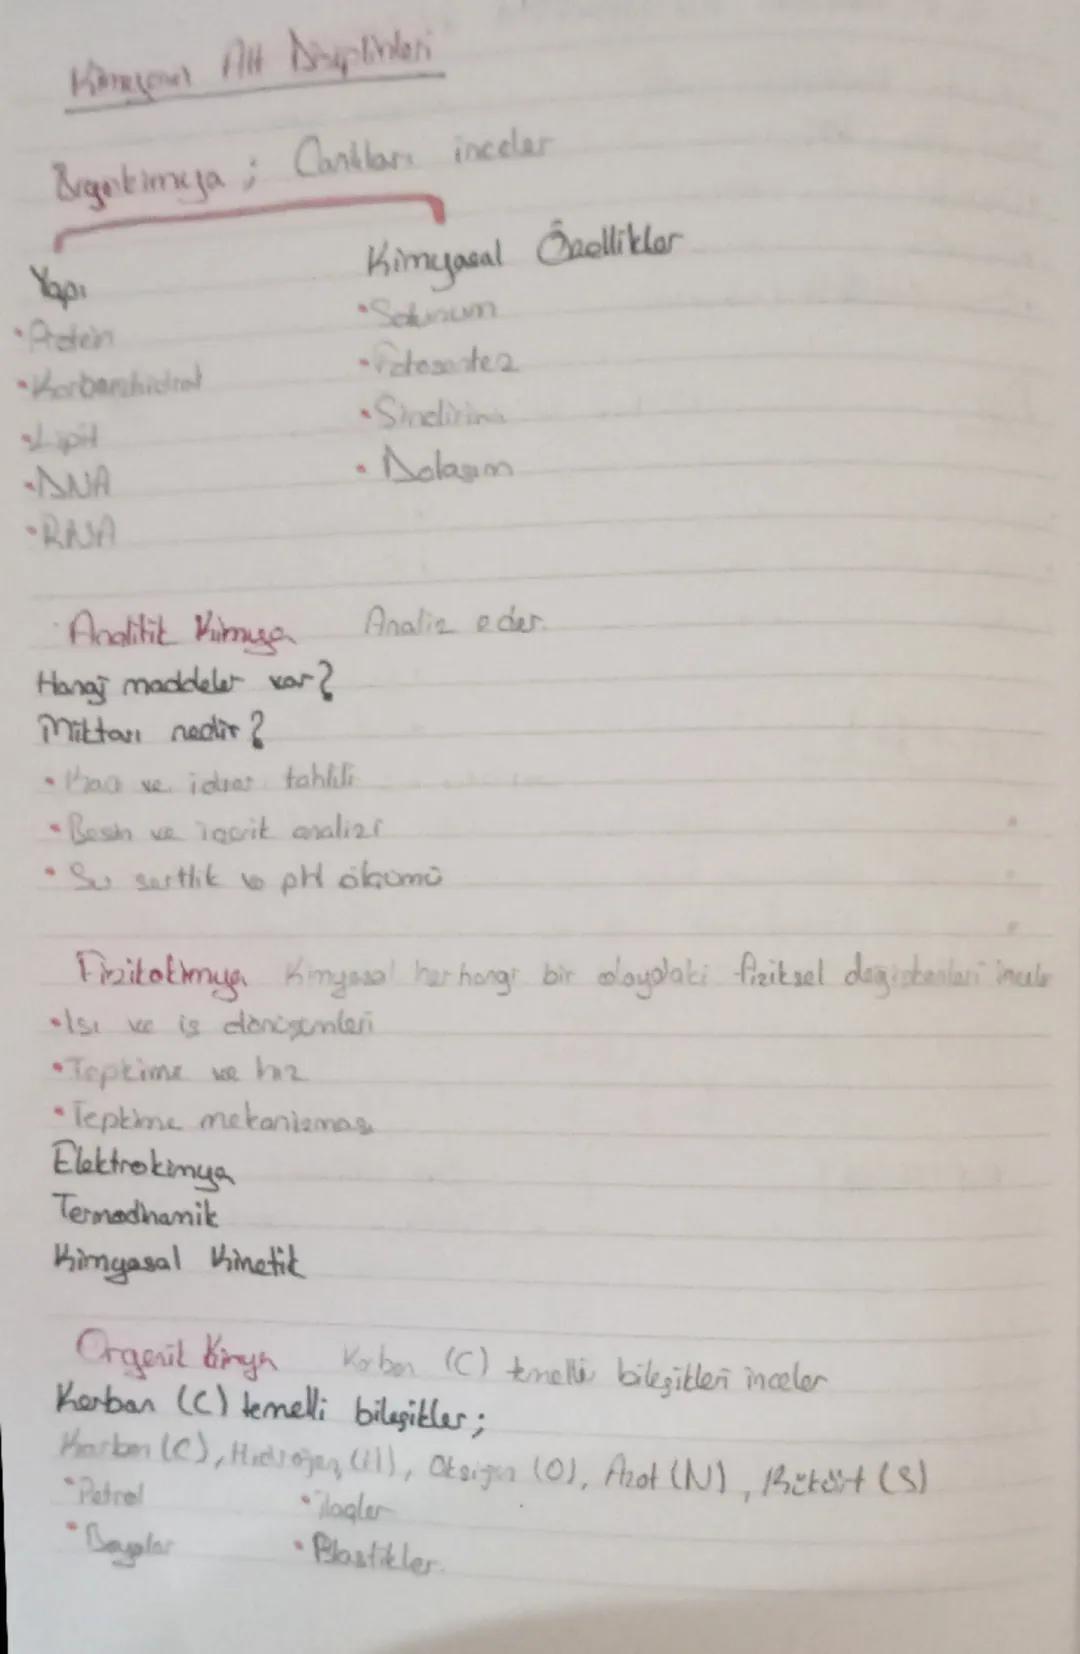 Kimyanın Alt Disiplinleri
Biyokimya ; Canlıları inceler
Yapı
• Protein
• Karbonhidrat
• Lipit
• DNA
• RNA
Kimyasal Özellikler
• Solunum
• Fotosentez
• Sindirim
• Dolaşım
Analitik Kimya Analiz eder.
Hangi maddeler var?
Miktarı nedir?
• Kan ve idrar tahlili
• Besin ve içerik analizi
• Su sertlik ve pH ölçümü
Fizikokimya Kimyasal herhangi bir olaydaki fiziksel değişkenleri inceler
• Isı ve iş dönüşümleri
• Tepkime ve hız
• Tepkime mekanizması
Elektrokimya
Termodinamik
Kimyasal Kinetik
Organik Kimya Karbon (C) temelli bileşikleri inceler
Karbon (C) temelli bileşikler;
Karbon (C), Hidrojen (H), Oksijen (O), Azot (N), Kükürt (S)
• Petrol • ilaçlar
• Boyalar • Plastikler.